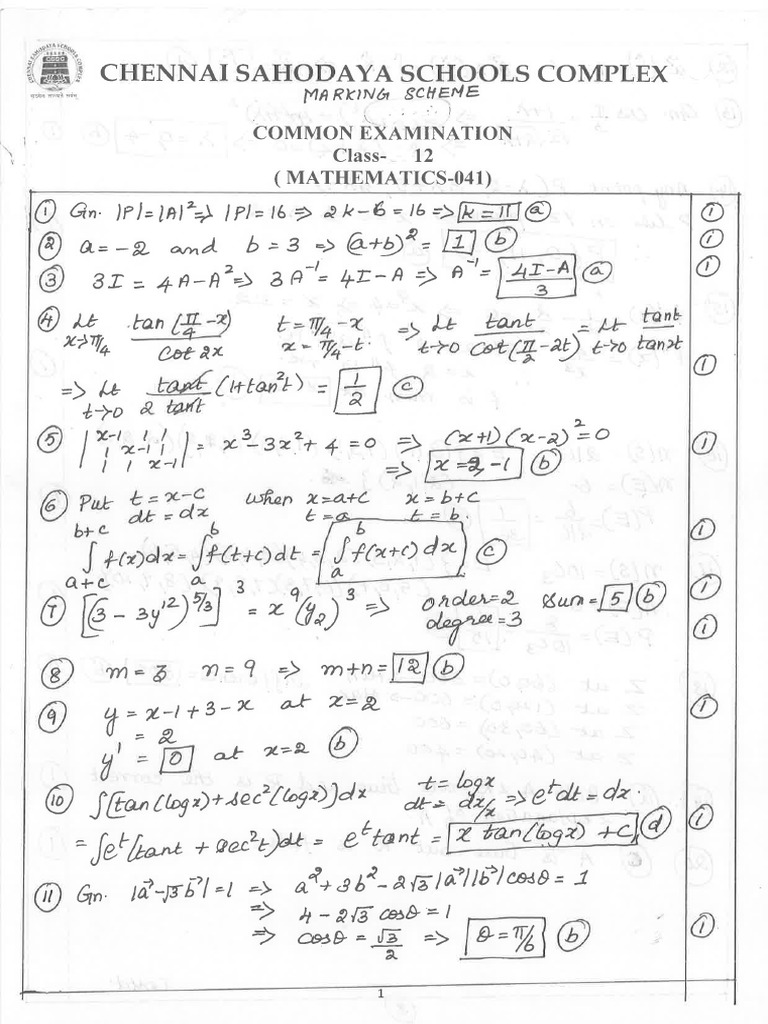 CHENNAI SAHODAYA SCHOOLS COMPLEX
MARKING SCHEME
COMMON EXAMINATION
Class- 12
( MATHEMATICS-041)
① Gn. |P|=|A|² => |P|=16 => 2k-6=16 => k=11 ⓐ ①
② a=-2 and b=3 => (a+b)² = 1 ⓑ ①
③ 3I = 4A-A² => 3A⁻¹ = 4I-A => A⁻¹ = (4I-A)/3 ⓐ ①
④ Lt x→π/4 tan(π/4-x)/cot2x t=π/4-x x=π/4-t => Lt t→0 tant/cot(π/2-2t) = Lt t→0 tant/tan2t
=> Lt t→0 tant/2tant (1+tan²t) = 1/2 ⓒ ①
⑤ |x-1 1 1; 1 x-1 1; 1 1 x-1| = x³-3x²+4=0 => (x+1)(x-2)²=0 ①
=> x=2,-1 ⓑ
⑥ Put t=x-c when x=a+c x=b+c
dt=dx t=a t=b
∫_{a+c}^{b+c} f(x)dx = ∫_a^b f(t+c)dt = ∫_a^b f(x+c)dx ⓒ ①
⑦ [(3-3y'²)^{5/3}]³ = x⁹(y₂)³ => order=2 Sum=5 ⓑ ①
degree=3 ①
⑧ m=3 n=9 => m+n=12 ⓑ
⑨ y=x-1+3-x at x=2 ①
=2
y' = 0 at x=2 ⓑ
⑩ ∫[tan(logx)+sec²(logx)]dx t=logx dt=dx/x => eᵗdt=dx.
=∫eᵗ[tant+sec²t]dt = eᵗtant = x tan(logx)+c ⓓ ①
⑪ Gn. |a⃗-√3b⃗|=1 => a²+3b²-2√3|a⃗||b⃗|cosθ=1
=> 4-2√3cosθ=1
=> cosθ=√3/2 => θ=π/6 ⓑ ①
1